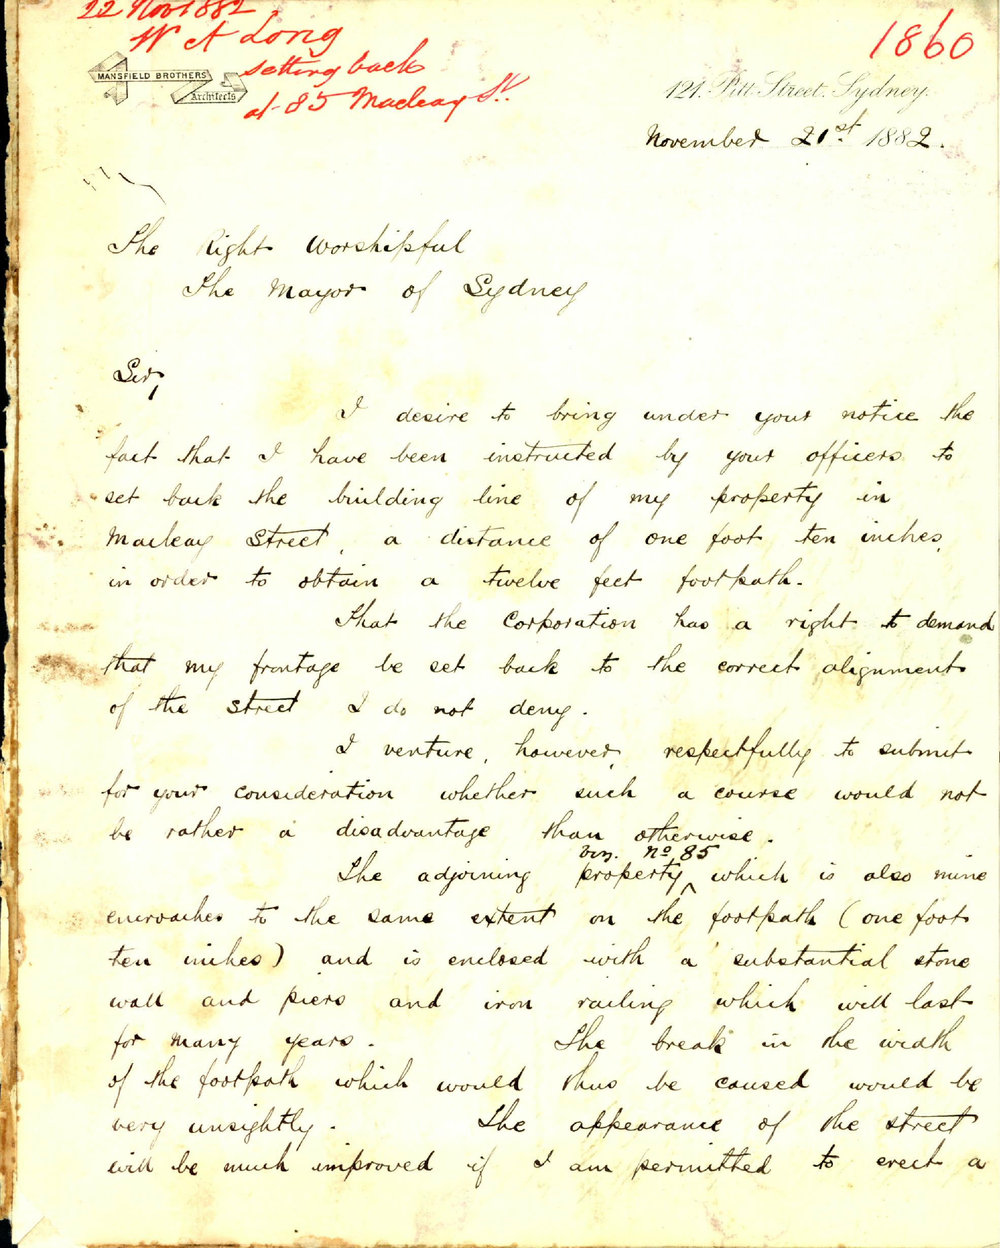 22 Nov 1882
W A Long
setting back
at 85 Macleay St.
1860
MANSFIELD BROTHERS
Architects
121. Pitt Street. Sydney.
November 21st 1882.
The Right Worshipful
The Mayor of Sydney
Sir,
I desire to bring under your notice the
fact that I have been instructed by your officers to
set back the building line of my property in
Macleay Street, a distance of one foot ten inches,
in order to obtain a twelve feet footpath.
That the Corporation has a right to demand
that my frontage be set back to the correct alignment
of the street I do not deny.
I venture, however, respectfully to submit
for your consideration whether such a course would not
be rather a disadvantage than otherwise.
viz. No 85
The adjoining property ^ which is also mine
encroaches to the same extent on the footpath (one foot
ten inches) and is enclosed with a substantial stone
wall and piers and iron railing which will last
for many years. The break in the width
of the footpath which would thus be caused would be
very unsightly. The appearance of the street
will be much improved if I am permitted to erect a